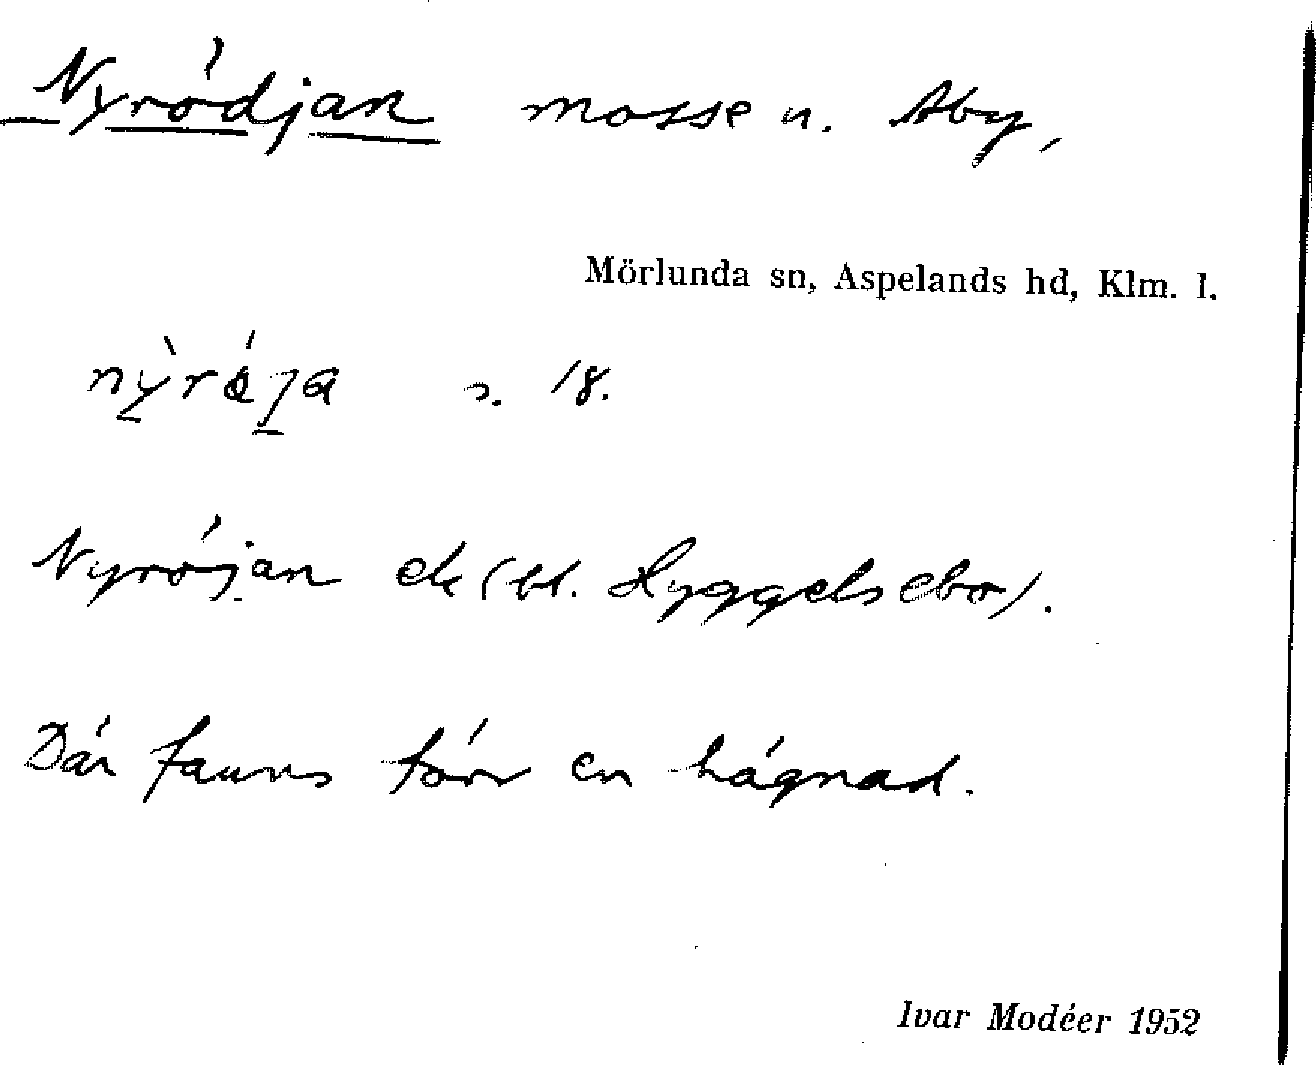 Nyrödjan mosse u. Åby,
Mörlunda sn, Aspelands hd, Klm. l.
s. 18.
Nyröjan ek (bl. Hyggelsebo).
Där fanns förr en hägnad.
Ivar Modéer 1952